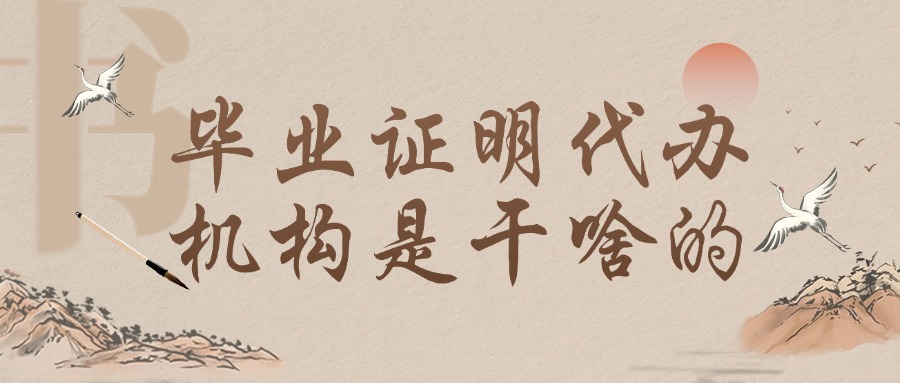 书
毕业证明代办
机构是干啥的